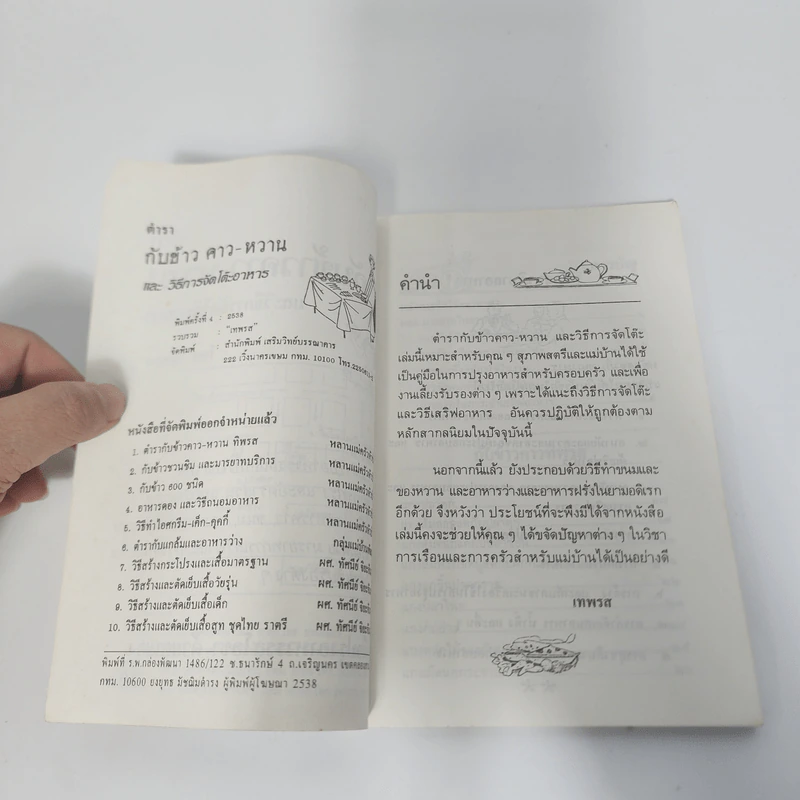 ตำรา
กับข้าว คาว-หวาน
และ วิธีการจัดโต๊ะอาหาร
พิมพ์ครั้งที่ 4 : 2538
รวบรวม : "เทพรส"
จัดพิมพ์ : สำนักพิมพ์ เสริมวิทย์บรรณาคาร
222 เวิ้งนาครเขษม กทม. 10100 โทร.
หนังสือที่จัดพิมพ์ออกจำหน่ายแล้ว
1. ตำรากับข้าวคาว-หวาน ทิพรส หลานแม่ครัวหัว
2. กับข้าวชวนชิม และมารยาทบริการ หลานแม่ครัวหัว
3. กับข้าว 600 ชนิด หลานแม่ครัวหัว
4. อาหารดอง และวิธีถนอมอาหาร หลานแม่ครัวหัว
5. วิธีทำไอศกรีม-เค็ก-คุกกี้ หลานแม่ครัวหัว
6. ตำรากับแกล้มและอาหารว่าง กลุ่มแม่บ้าน
7. วิธีสร้างกระโปรงและเสื้อมาตรฐาน ผศ. ทัศนีย์
8. วิธีสร้างและตัดเย็บเสื้อวัยรุ่น ผศ. ทัศนีย์
9. วิธีสร้างและตัดเย็บเสื้อเด็ก ผศ. ทัศนีย์
10. วิธีสร้างและตัดเย็บเสื้อสูท ชุดไทย ราตรี ผศ. ทัศนีย์
พิมพ์ที่ ร.พ.กล่องพัฒนา 1486/122 ซ.ธนารักษ์ 4 ถ.เจริญนคร
กทม. 10600 ยงยุทธ มัชฌิมดำรง ผู้พิมพ์ผู้โฆษณา 2538
คำนำ
ตำรากับข้าวคาว-หวาน และวิธีการจัดโต๊ะ
เล่มนี้เหมาะสำหรับคุณ ๆ สุภาพสตรีและแม่บ้านได้ใช้
เป็นคู่มือในการปรุงอาหารสำหรับครอบครัว และเพื่อ
งานเลี้ยงรับรองต่าง ๆ เพราะได้แนะถึงวิธีการจัดโต๊ะ
และวิธีเสริฟอาหาร อันควรปฏิบัติให้ถูกต้องตาม
หลักสากลนิยมในปัจจุบันนี้
นอกจากนี้แล้ว ยังประกอบด้วยวิธีทำขนมและ
ของหวาน และอาหารว่างและอาหารฝรั่งในยามอดิเรก
อีกด้วย จึงหวังว่า ประโยชน์ที่จะพึงมีได้จากหนังสือ
เล่มนี้คงจะช่วยให้คุณ ๆ ได้ขจัดปัญหาต่าง ๆ ในวิชา
การเรือนและการครัวสำหรับแม่บ้านได้เป็นอย่างดี
เทพรส